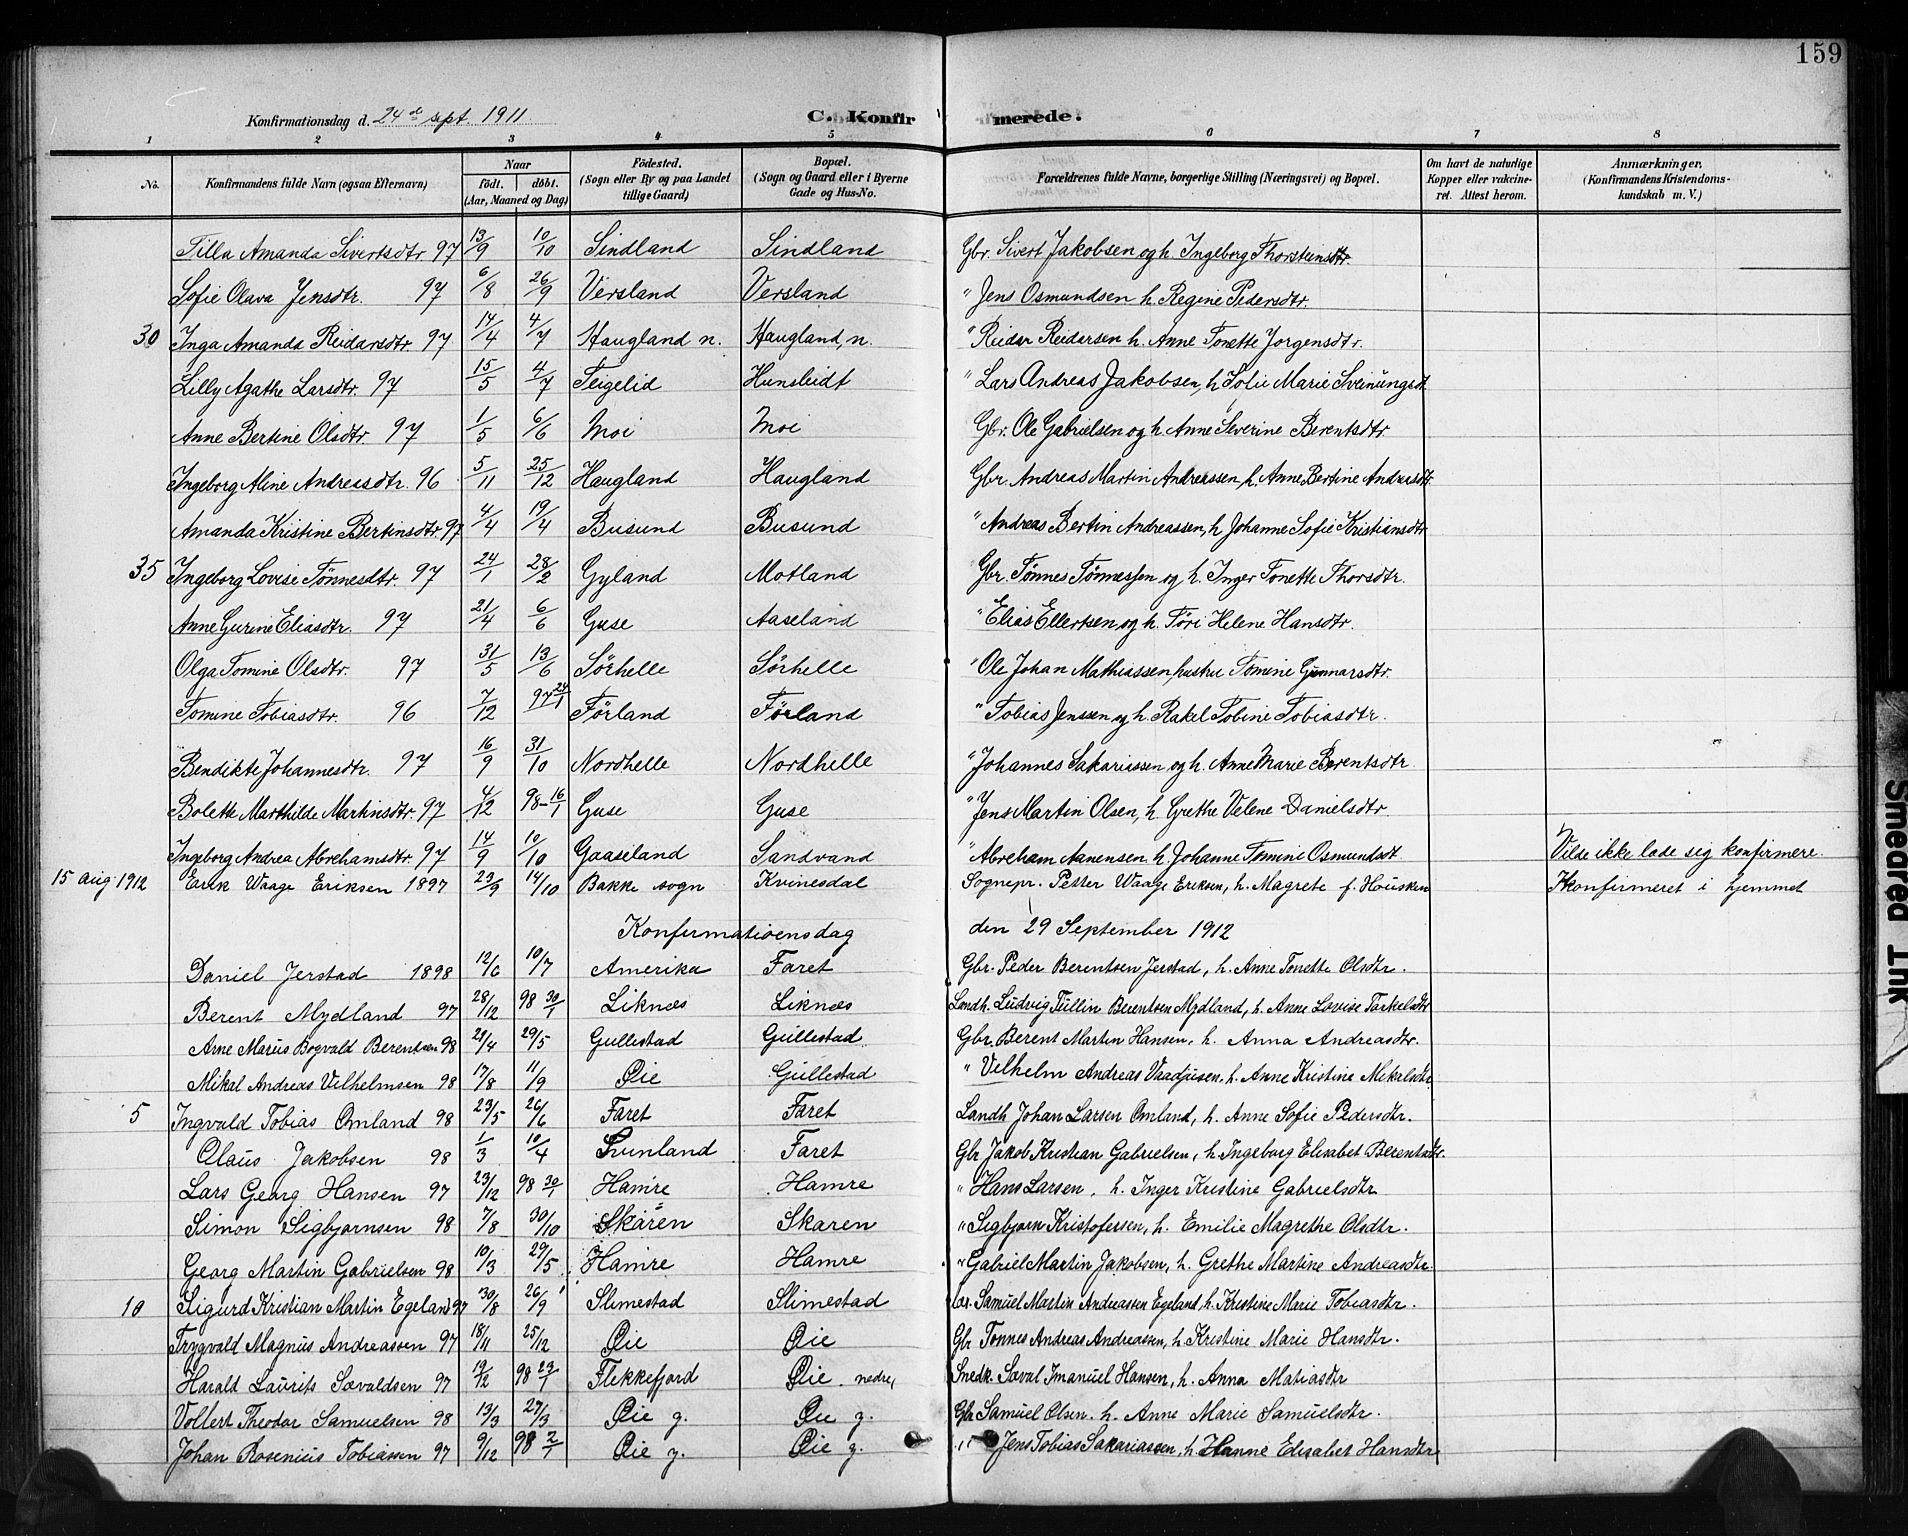 159
Konfirmationsdag d. 24de sept. 1911 C. Konfirmerede.
1 2 3 4 5 6 7 8
No. Konfirmandens fulde Navn (ogsaa Efternavn) Naar født. døbt. (Aar, Maaned og Dag) Fødested. (Sogn eller By og paa Landet tillige Gaard) Bopæl. (Sogn og Gaard eller i Byerne Gade og Hus-No. Forældrenes fulde Navne, borgerlige Stilling (Næringsvei) og Bopæl. Om havt de naturlige Kopper eller vakcineret. Attest herom. Anmærkninger. (Konfirmandens Kristendomskundskab m. V.)
Tilla Amanda Sivertsdtr 97 13/9 10/10 Sindland Sindland Gbr. Sivert Jakobsen og h. Ingeborg Thorsteinsdtr.
Sofie Olava Jensdtr. 97 6/8 26/9 Versland Versland " Jens Osmundsen h. Regine Pedersdtr.
30 Inga Amanda Reidarsdtr. 97 14/4 4/7 Haugland n. Haugland, n. " Reidar Reidersen h. Anne Tonette Jorgensdtr.
Lilly Agathe Larsdtr. 97 15/5 4/7 Feigelid Hunsleidt " Lars Andreas Jakobsen, h Sofie Marie Sveinungsdt
Anne Bertine Olsdtr. 97 1/5 6/6 Moi Moi Gbr. Ole Gabrielsen og h. Anne Severine Berentsdtr.
Ingeborg Aline Andreasdtr. 96 5/11 25/12 Haugland Haugland Gbr. Andreas Martin Andreassen, h. Anne Bertine Andreasdtr
Amanda Kristine Bertinsdtr. 97 4/4 19/4 Busund Busund " Andreas Bertin Andreassen, h Johanne Sofie Kristiansdtr
35 Ingeborg Lovise Tønnesdtr. 97 24/1 28/2 Gyland Motland Gbr. Tønnes Tønnessen og h. Inger Tonette Thorsdtr.
Anne Gurine Eliasdtr. 97 21/4 6/6 Guse Aaseland " Elias Ellertsen og h. Tøri Helene Hansdtr.
Olga Tomine Olsdtr. 97 31/5 13/6 Sørhelle Sørhelle " Ole Johan Mathiassen, hustru Tomine Gunnarsdtr.
Tomine Tobiasdtr. 96 7/12 97 24/1 Førland Førland " Tobias Jenssen og h. Rakel Tobine Tobiasdtr.
Bendikte Johannesdtr. 97 16/9 31/10 Nordhelle Nordhelle " Johannes Sakariassen og h. Anne Marie Berentsdtr
Bolette Marthilde Martinsdtr. 97 4/12 98-16/1 Guse Guse " Jens Martin Olsen, h. Grethe Velene Danielsdtr.
Ingeborg Andrea Abrehamsdtr. 97 14/9 10/10 Gaaseland Sandvand " Abreham Aanensen h. Johanne Tomine Osmundsdt. Vilde ikke lade sig konfirmere.
15 aug. 1912 Erik Waage Eriksen 1897 23/9 14/10 Bakke sogn Kvinesdal Sognepr. Petter Waage Eriksen, h. Magrete f. Housken Konfirmeret i hjemmet
Konfirmationsdag den 29 September 1912
Daniel Jerstad 1898 12/6 10/7 Amerika Faret Gbr. Peder Berentsen Jerstad, h. Anne Tonette Olsdtr.
Berent Mydland 97 28/12 98 30/1 Liknæs Liknæs Landh. Ludvig Tüllin Berentsen Mydland, h. Anne Lovise Torkelsdtr
Arne Marius Bogvald Berentsen 98 21/4 29/5 Gullestad Gullestad Gbr. Berent Martin Hansen, h. Anna Andreasdtr.
Mikal Andreas Vilhelmsen 98 17/8 11/9 Øie Gullestad " Vilhelm Andreas Vaadjusen, h. Anne Kristine Mikalsdtr
5 Ingvald Tobias Omland 98 23/5 26/6 Faret Faret Landh Johan Larsen Omland, h. Anne Sofie Pedersdtr.
Olaus Jakobsen 98 1/3 10/4 Svinland Faret Gbr Jakob Kristian Gabrielsen, h. Ingeborg Elisabet Berentsdtr.
Lars Georg Hansen 97 23/12 98 30/1 Hamre Hamre " Hans Larsen, h. Inger Kristine Gabrielsdtr
Simon Sigbjørnsen 98 7/8 30/10 Skaren Skaren " Sigbjørn Kristofersen, h. Emilie Magrethe Olsdtr.
Georg Martin Gabrielsen 98 10/3 29/5 Hamre Hamre " Gabriel Martin Jakobsen, h. Grethe Martine Andreasdtr.
10 Sigurd Kristian Martin Egeland 97 30/8 26/9 Slimestad Slimestad Samuel Martin Andreassen Egeland, h. Kristine Marie Tobiasdtr.
Trygvald Magnus Andreassen 97 18/11 25/12 Øie Øie Gbr Tonnes Andreas Andreassen, h Kristine Marie Hansdtr.
Harald Laurits Sævaldsen 97 19/12 98 23/1 Flekkefjord Øie nedre, Snedk. Sæval Imanuel Hansen, h. Anna Matiasdtr
Vollert Theodor Samuelsen 98 13/3 27/3 Øie g. Øie g. Gbr Samuel Olsen. h. Anne Marie Samuelsdtr.
Johan Rosenius Tobiassen 97 9/12 98 2/1 Øie g. Øie g. " Jens Tobias Sakariassen, h. Hanne Elisabet Hansdtr
Smeared Ink